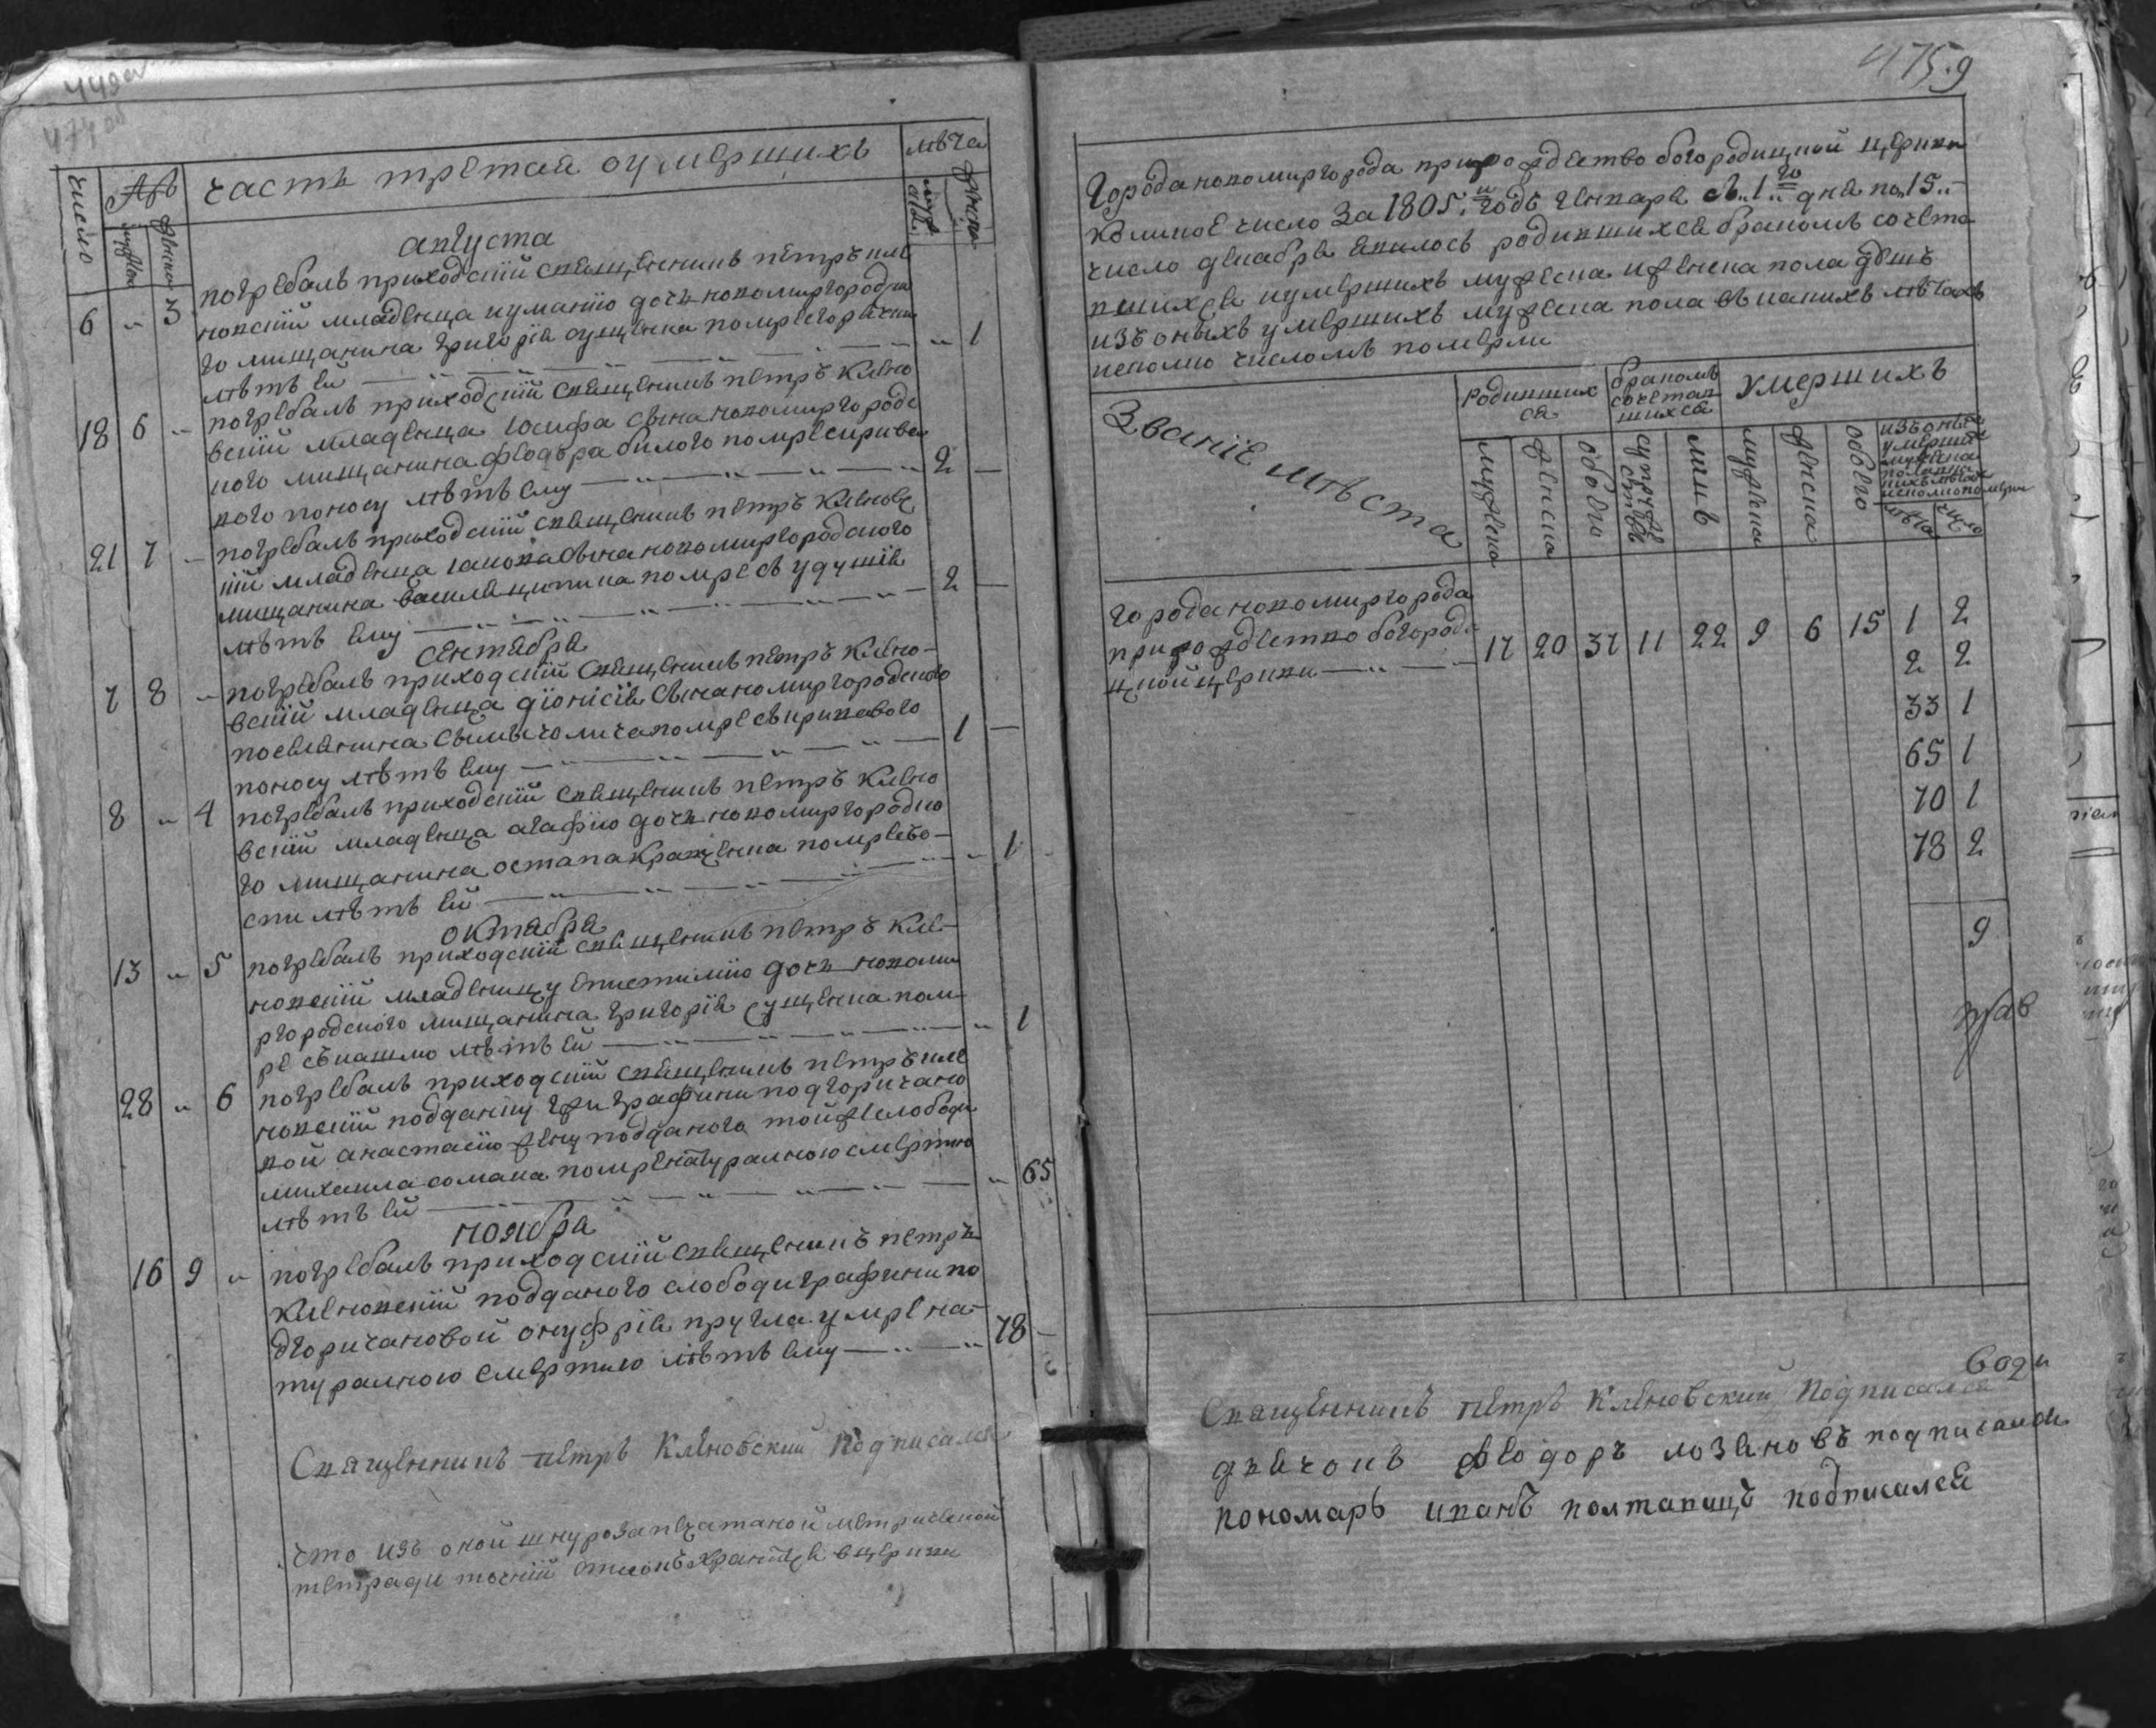 449об
474об
часть третая оумершихъ
число
мужеска
женска
лѣта
женска
августа
6 " 3 погребалъ приходскій священникъ петръ кле
новскій младенца куманію дочь новомиргородска
го мищанина григорія сущенка помре горячки
лѣтъ ей " 1
18 6 " погребалъ приходскій священникъ петръ клено
вскій младенца іосифа сына новомиргородс
кого мищанина феодора билого помре скрива
вого поносу лѣтъ ему 2 —
21 7 — погребалъ приходскій священникъ петръ кленовс
кій младенца іакова сина новомиргородского
мищанина василя помре съ удушія
лѣтъ ему 2 —
сентября
7 8 — погребалъ приходскій священникъ петръ клено-
вскій младенца діонісія сына номиргородского
поселянина помре съ кривавого
поносу лѣтъ ему 1 —
8 " 4 погребалъ приходскій священникъ петръ клено
вскій младенца агафію дочь новомиргородско
го мищанина остапа помре съ во-
спи лѣтъ ей " 1
октября
13 " 5 погребалъ приходскій священникъ петръ кле-
новскій младеницу епистимію дочь новоми
ргородского мищанина григорія сущенка пом-
ре съ кашлю лѣтъ ей " 1
28 " 6 погребалъ приходскій священникъ петръ кле
новскій подданну графини подгоричано
вой анастасію жену подданого тойже слободи
михаила сомака помре натуралною смертию
лѣтъ ей " 65
ноября
16 9 " погребалъ приходскій священникъ петръ
кленовскій подданого слободи графини по
дгоричановой онуфрія кругла умре на-
туралною смертию лѣтъ ему 78 —
Священникъ петръ Клѣновский подписался
что изъ оной шнурозапечатаной метрической
тетради точній списокъ хранится вцеркви
475.9
Города новомиргорода прирождество богородицкой церкви
коликое число За 1805.й годъ генваря съ 1.го дня по 15.
число декабря явилось родившихся бракомъ сочета
вшихся иумершихъ мужеска иженска пола душъ
изъ оныхъ умершихъ мужеска пола въ какихъ лѣтахъ
исколко числомъ померли
Званіе мѣста
родивших
ся
бракомъ
сочетав
шихся
Умершихъ
мужеска
женска
обоего
супруже
ствъ
лицъ
мужеска
женска
обоего
изъ оныхъ
умерших
мужеска
пола въ ка
кихъ лѣтахъ
исколко померли
лѣта
число
города новомиргорода
прирождество богороди
цкой церкви 17 20 37 11 22 9 6 15 1 2
2 2
33 1
65 1
70 1
78 2
9
Священникъ петръ Клѣновский Подписался
дьячокъ феодоръ лозановъ подписался
пономарь иванъ полтавецъ подписался